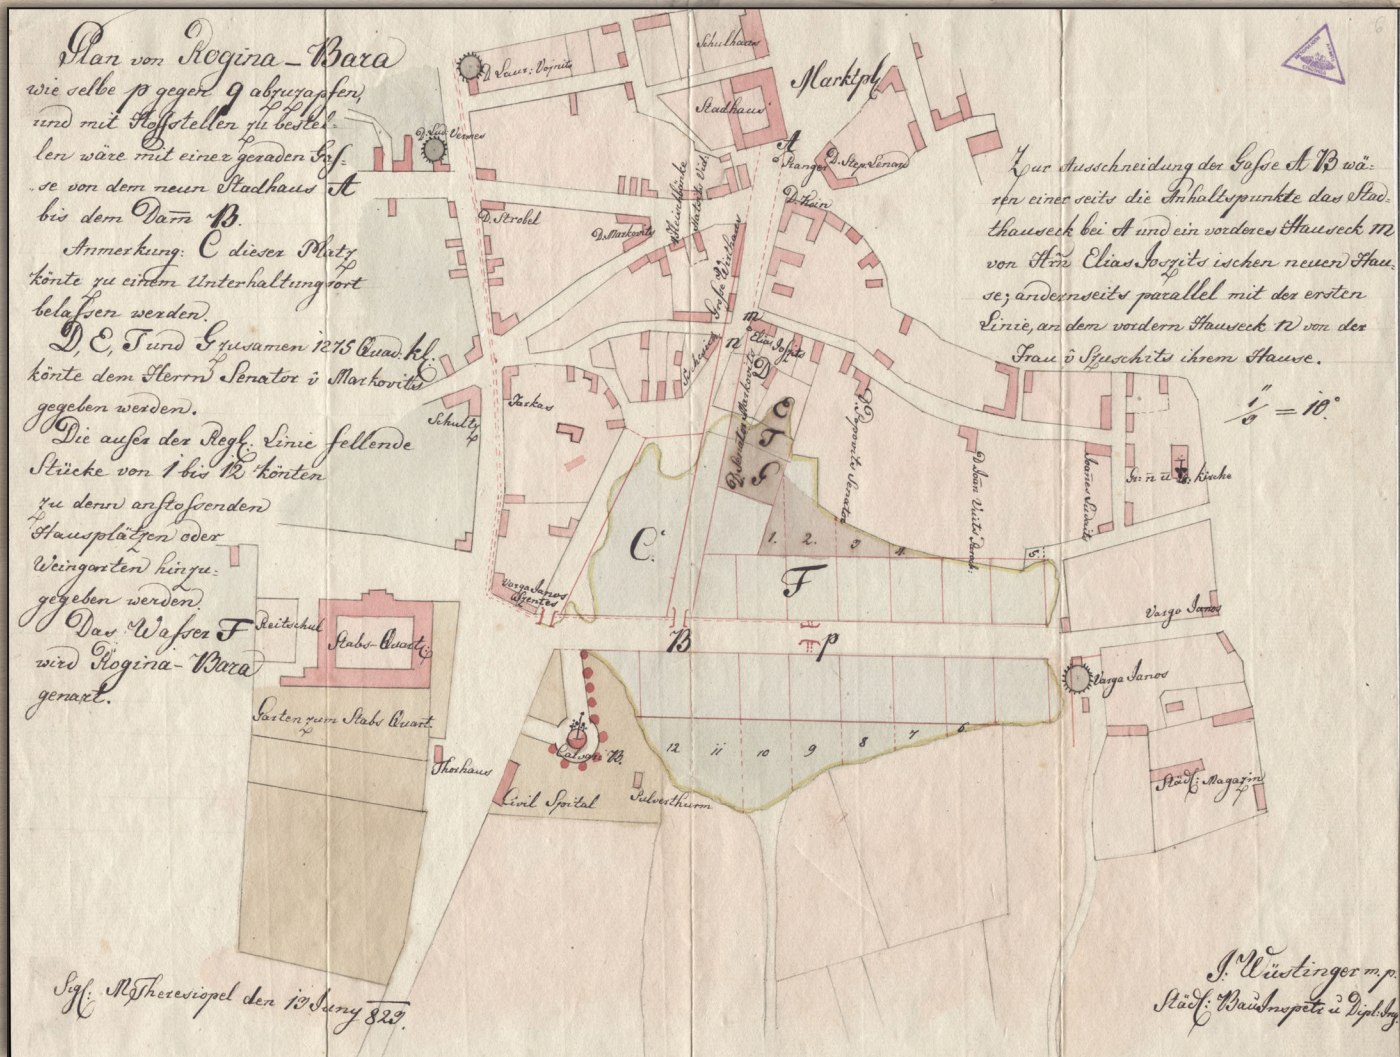 Plan von Rogina-Bara
wie selbe p gegen q abzuzapfen,
und mit Hofstellen zu bestel-
len wäre mit einer geraden Gas-
se von dem neun Stadhaus A
bis dem Dam̄ B.
Anmerkung: C dieser Platz
könte zu einem Unterhaltungsort
belassen werden.
D, E, T und G zusamen 1275 Quad. kl.
könte dem Herrn Senator v Markovits
gegeben werden.
Die außer der Regl. Linie fellende
Stücke von 1 bis 12 könten
zu denn anstossenden
Hausplätzen oder
Weingarten hinzu-
gegeben werden.
Das Wasser F
wird Rogina-Bara
genant.
Sigl: M Theresiopel den 13 Juny 829.
Zur Ausschneidung der Gasse A B wä-
ren einerseits die Anhaltspunkte das Stad-
thauseck bei A und ein vorderes Hauseck m
von Hrn̄ Elias Joszits ischen neuen Hau-
se; andernseits parallel mit der ersten
Linie, an dem vordern Hauseck n von der
Frau v Szuschits ihrem Hause.
1" = 10°
Schulhaus
D. Laur: Vojnits
Marktpl.
Stadhaus
D. Lud: Vermes
A
Stanger
D. Step: Lénard
D. Koin
D. Strobel
D. Markovits
Fleischbänke
Große Wirthaus
m
n
Elias Joszits
D
D. Senator Markovits
E
T
G
D. Popovits Senator
Schultz
Farkas
C
1. 2. 3 4. 5.
F
D. Joan Vuits
Joannes Sudarits
Gr: n: u: Kirche
Varga Janos
Szentes
B
p
Vargo Janos
Varga Janos
Reitschul
Stabs-Quart:
Garten zum Stabs Quart.
Thorhaus
Calvari B.
Civil Spital
Pulverthurm
12 11 10 9 8 7 6
Städl: Magazin
J: Wüstinger m. p.
Städl: Bau Inspctr u Dipl: Ing